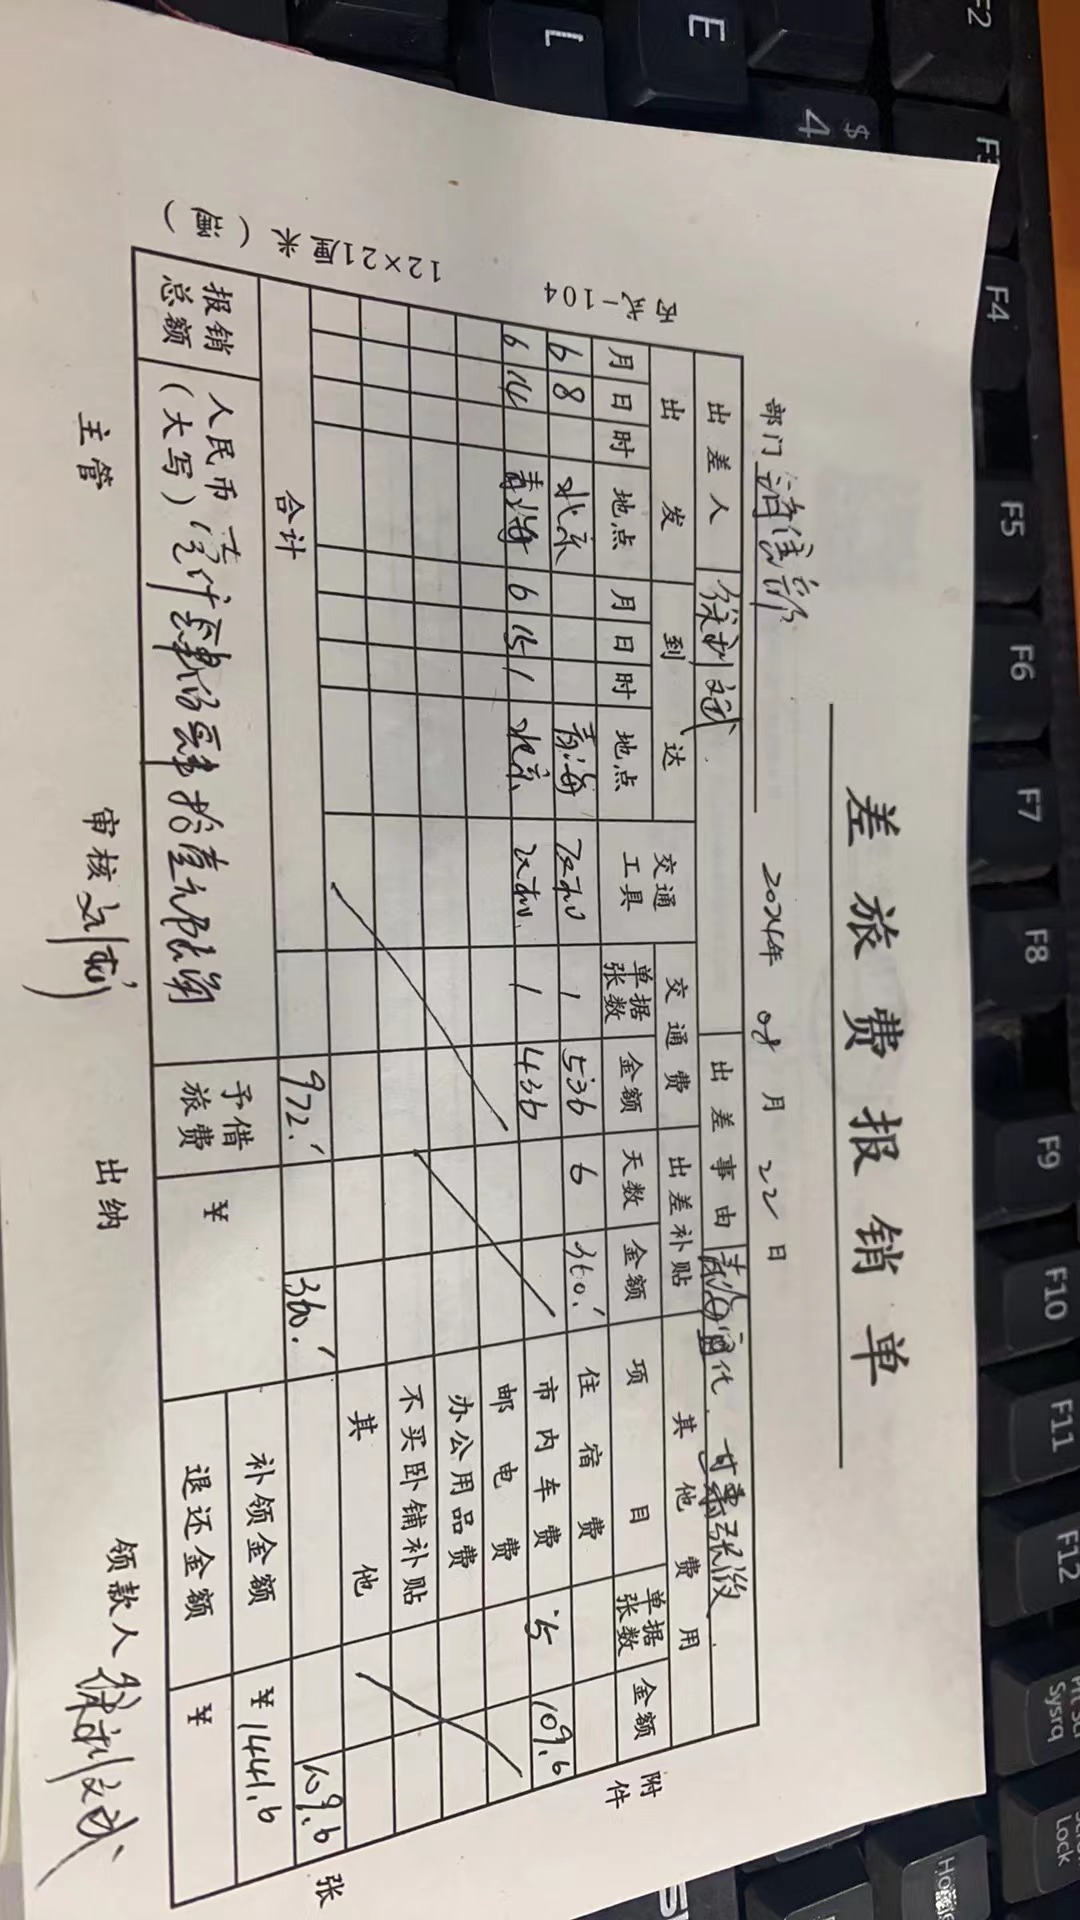 差旅费报销单
部门 2024年 08 月 22 日
出差人 出差事由 青海 化、甘肃张掖
出发 到达 交通工具 交通费 出差补贴 其他费用
月 日 时 地点 月 日 时 地点 单据张数 金额 天数 金额 项目 单据张数 金额
6 8 北京 青海 1 536 6 360. 住宿费
6 14 青海 6 15 1 北京 1 436 市内车费 5 109.6
邮电费
办公用品费
不买卧铺补贴
其他
合计 972. 360. 109.6
报销总额 人民币(大写) 予借旅费 ¥ 补领金额 ¥1441.6
退还金额 ¥
主管 审核 出纳 领款人
附件 张
丙式-104
12×21厘米(通)
E
L
F2
$
4
F3
F4
F5
F6
F7
F8
F9
F10
F11
F12
Sysrq
Lock